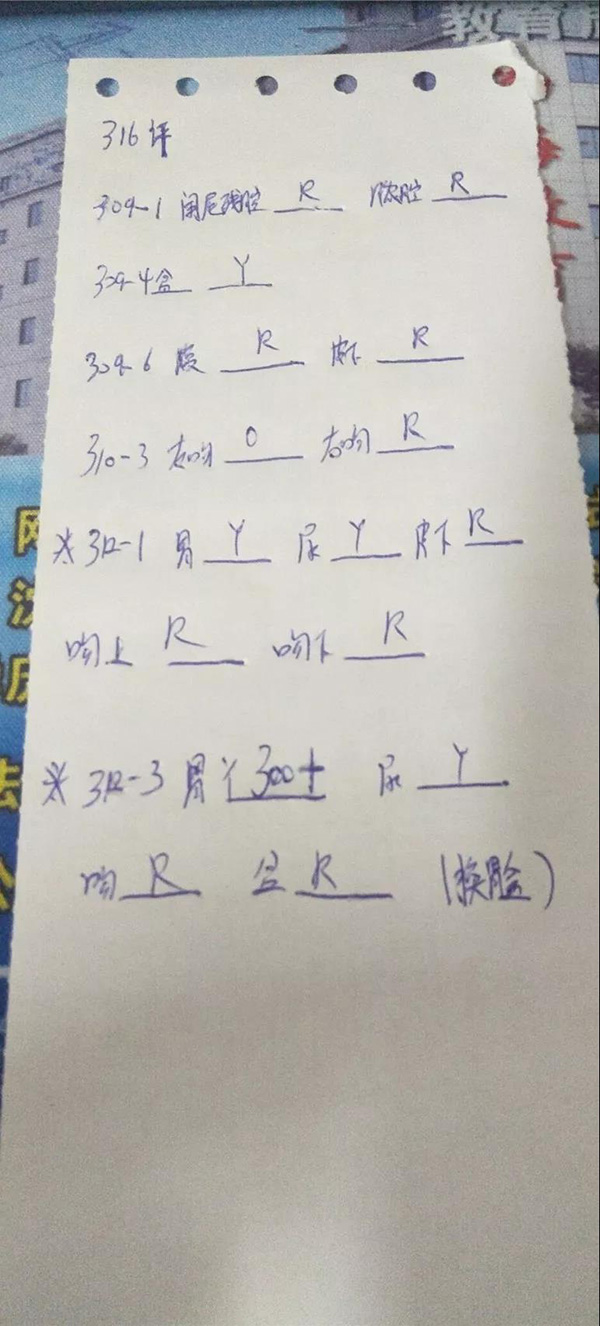 教育
316 评
309-1 阑尾残腔 R 脓腔 R
309-4 盆 Y
309-6 腹 R 皮下 R
310-3 左吻 0 右吻 R
※312-1 胃 Y 尿 Y 皮下 R
吻上 R 吻下 R
※312-3 胃 Y 300+ 尿 Y
吻 R 盆 R (换脸)